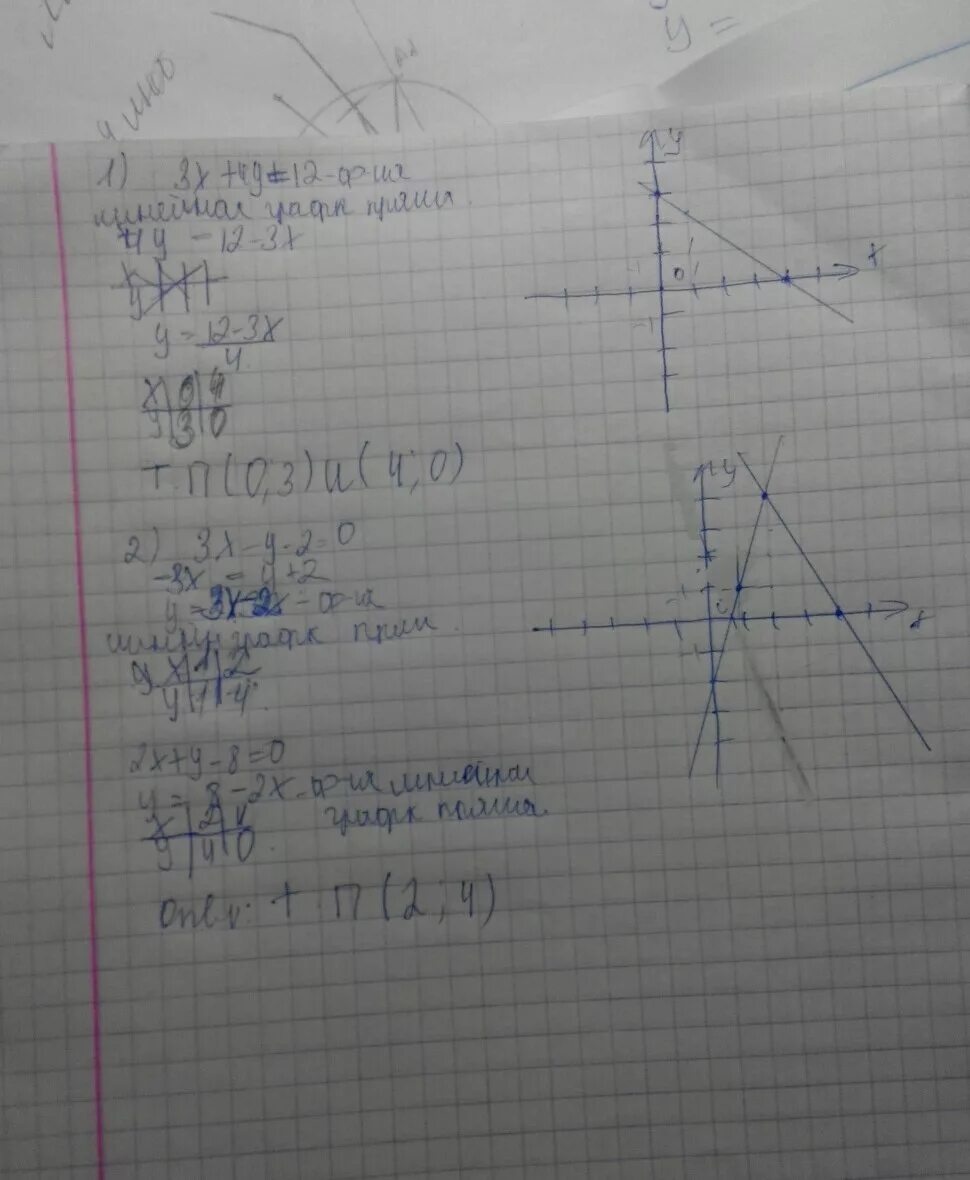 y =
1) 3x + 4y = 12 - ф-ия
линейная график прямая
4y = 12 - 3x
x
y
y = 12 - 3x
4
x | 0 | 4
y | 3 | 0
т. П (0; 3) и (4; 0)
2) 3x - y - 2 = 0
-3x = y + 2
y = 3x - 2 - ф-ия
график прям.
x | 1 | 2
y | 1 | 4
2x + y - 8 = 0
y = 8 - 2x - ф-ия линейная
график прямая.
x | 2 | 4
y | 4 | 0
Ответ: т. П (2; 4)
y
x
0
1
-1
-1
y
x
-1
-1